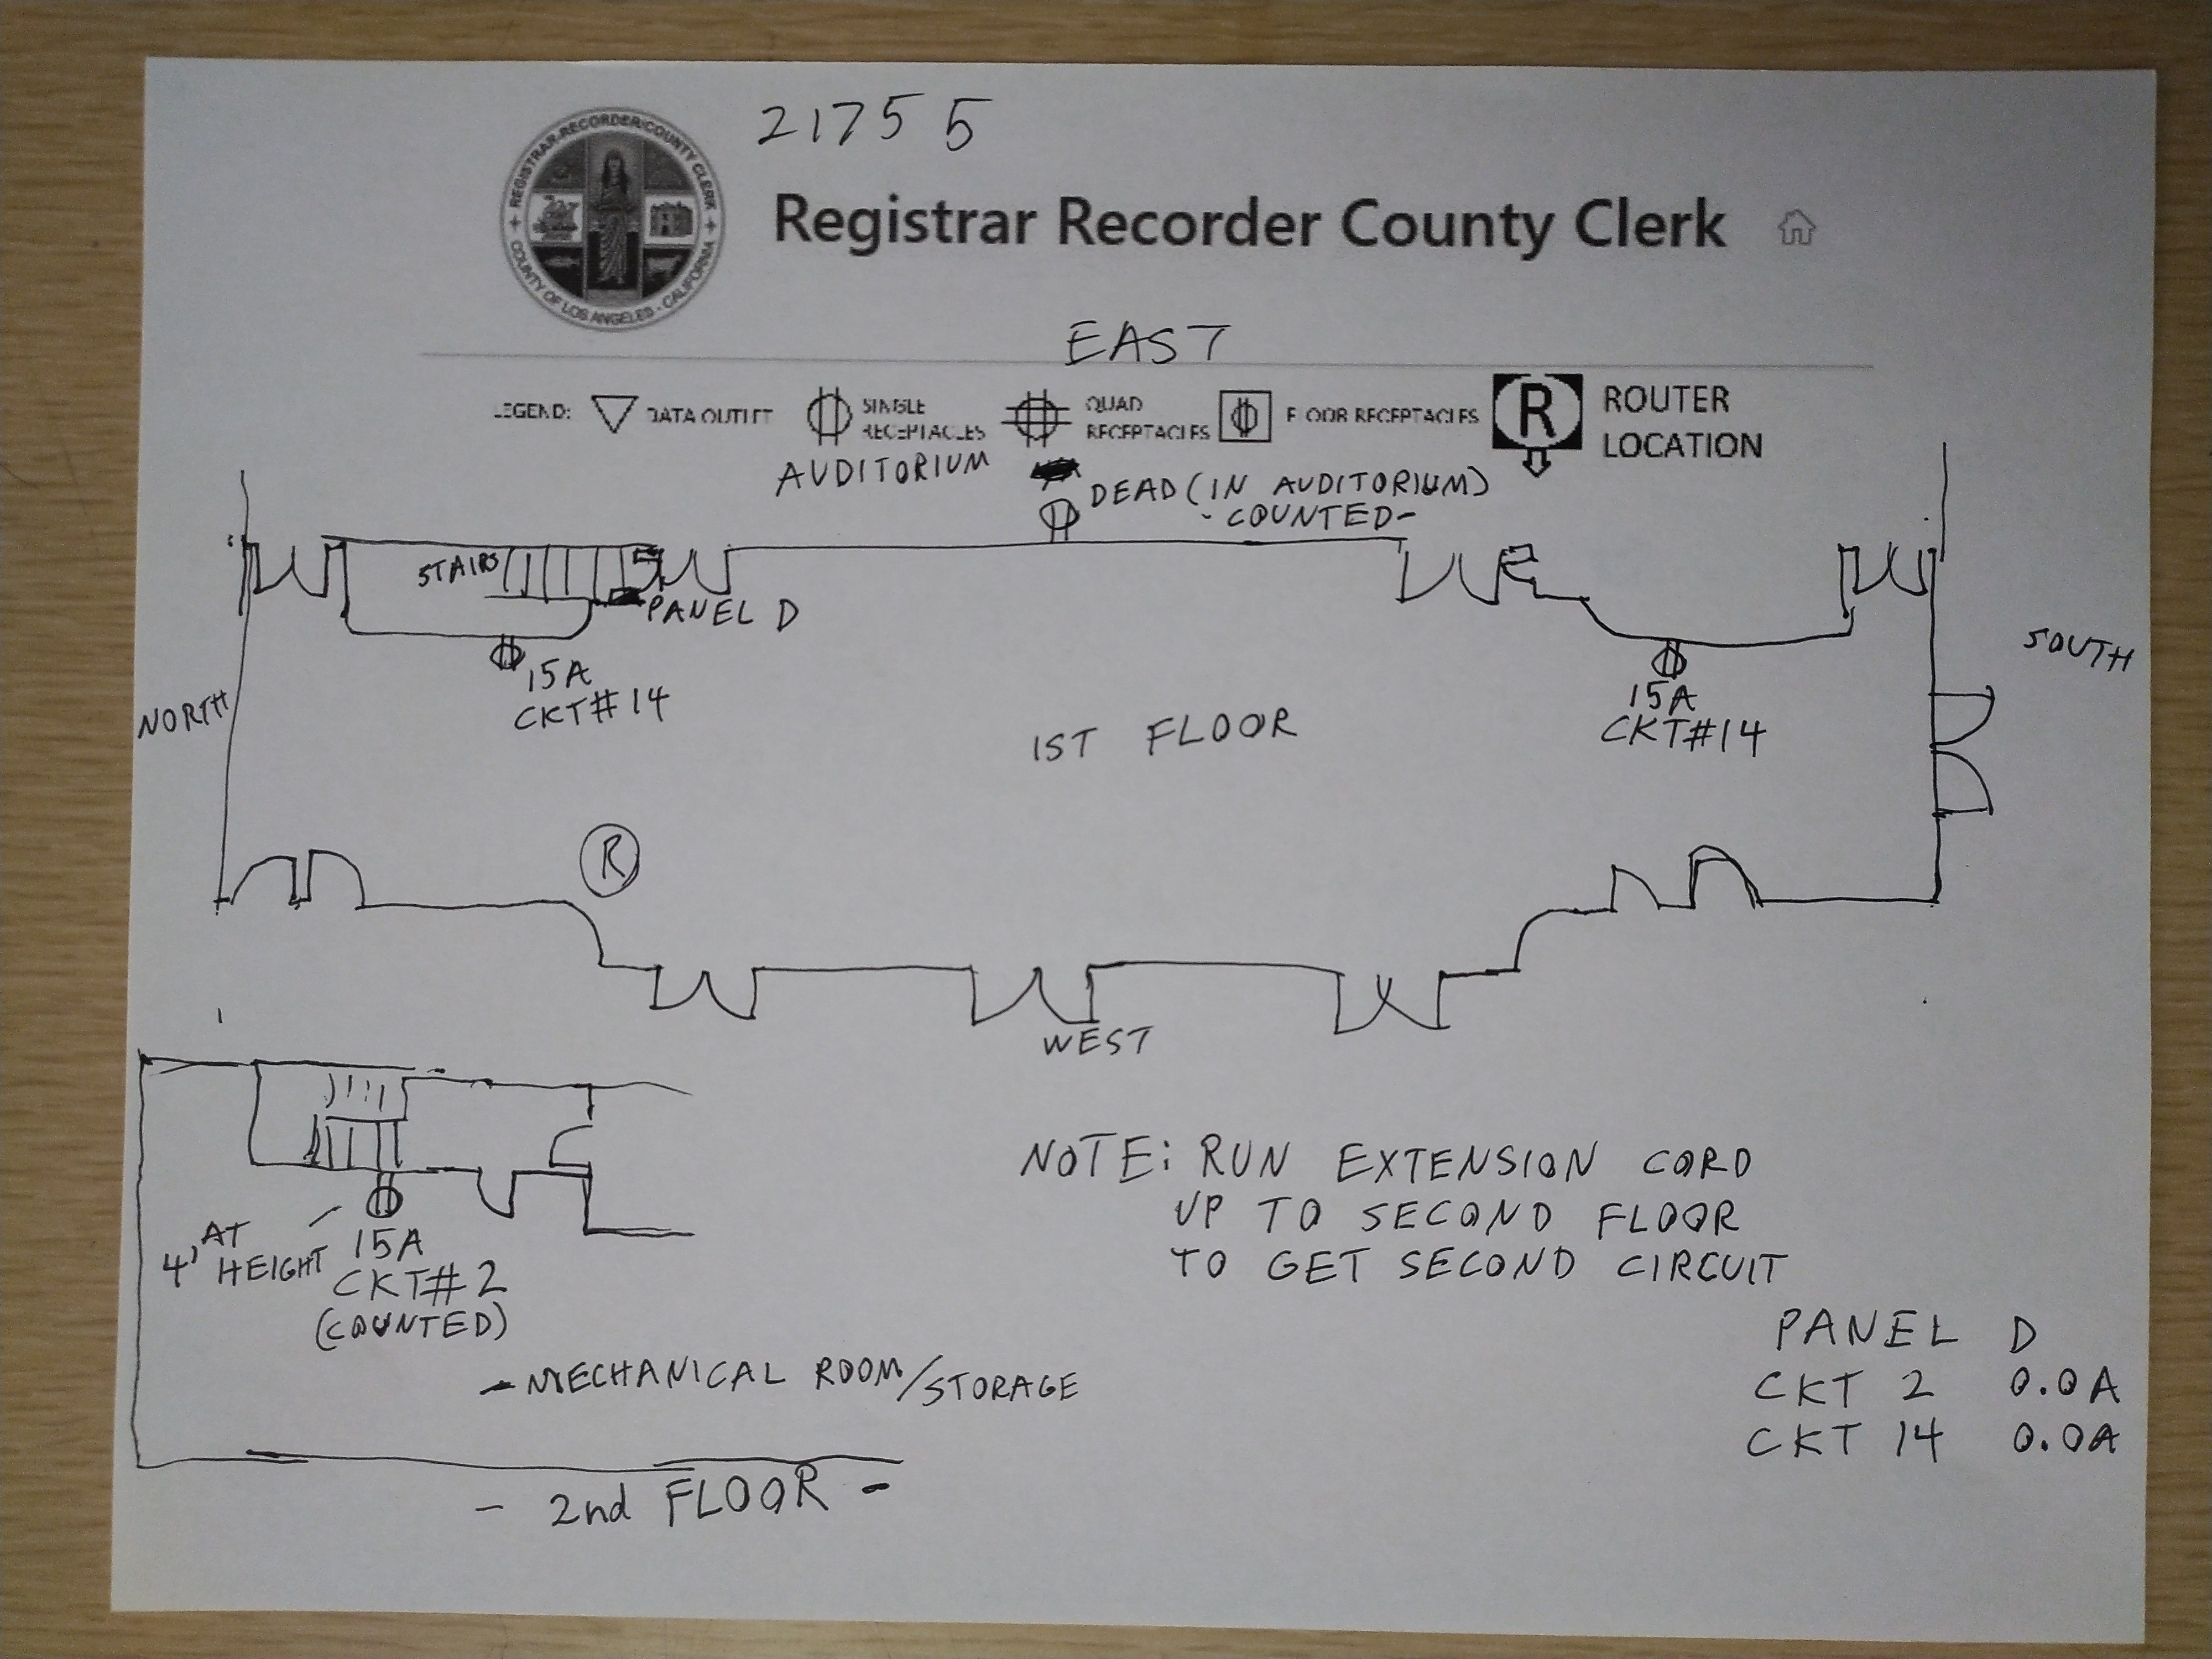 21755
REGISTRAR-RECORDER/COUNTY CLERK
COUNTY OF LOS ANGELES - CALIFORNIA
Registrar Recorder County Clerk
EAST
LEGEND:
DATA OUTLET
SINGLE
RECEPTACLES
QUAD
RECEPTACLES
FLOOR RECEPTACLES
R
ROUTER
LOCATION
AUDITORIUM
DEAD (IN AUDITORIUM)
- COUNTED -
STAIRS
PANEL D
15A
CKT#14
NORTH
1ST FLOOR
15A
CKT#14
SOUTH
R
WEST
4' AT
HEIGHT
15A
CKT#2
(COUNTED)
- MECHANICAL ROOM/STORAGE
- 2nd FLOOR -
NOTE: RUN EXTENSION CORD
UP TO SECOND FLOOR
TO GET SECOND CIRCUIT
PANEL D
CKT 2 0.0A
CKT 14 0.0A